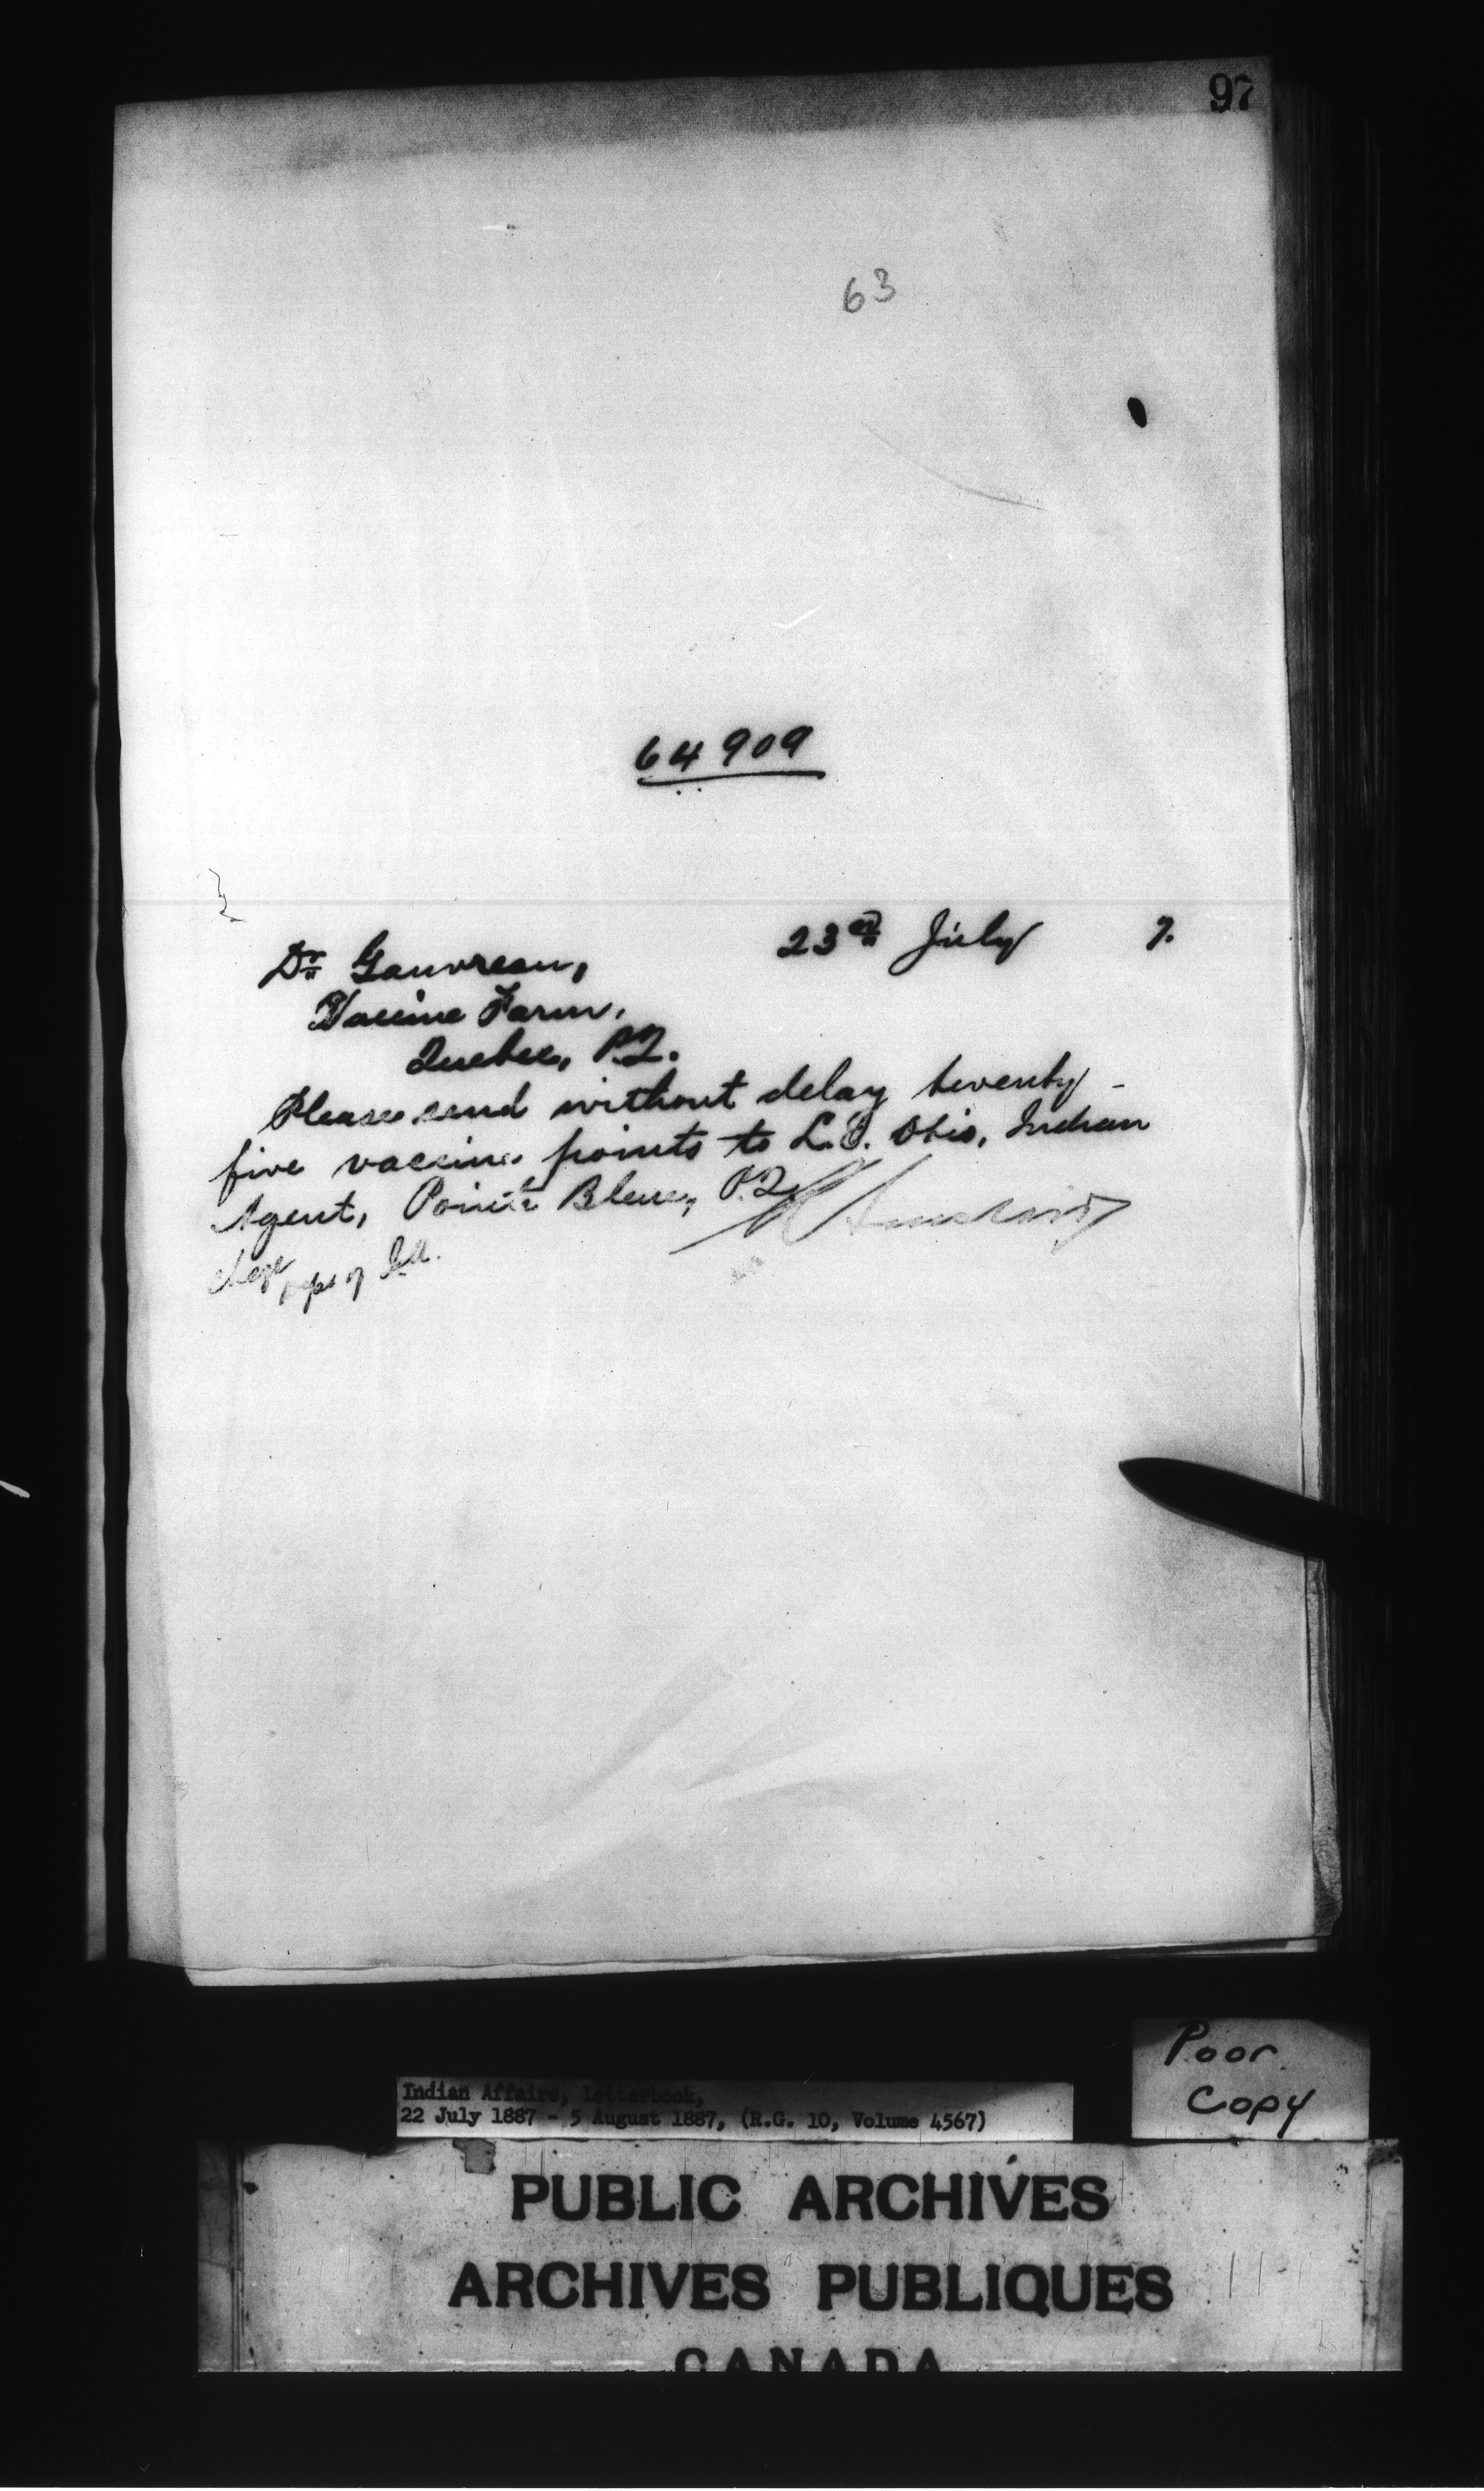 97
63
64909
23rd July 7.
Dr Gauvreau,
Vaccine Farm,
Quebec, P.Q.
Please send without delay twenty-
five vaccine points to L.E. Otis, Indian
Agent, Pointe Bleue, P.Q.
Chge Dept of I.A.
Poor
Copy
Indian Affairs, Letterbook,
22 July 1887 - 5 August 1887, (R.G. 10, Volume 4567)
PUBLIC ARCHIVES
ARCHIVES PUBLIQUES
CANADA